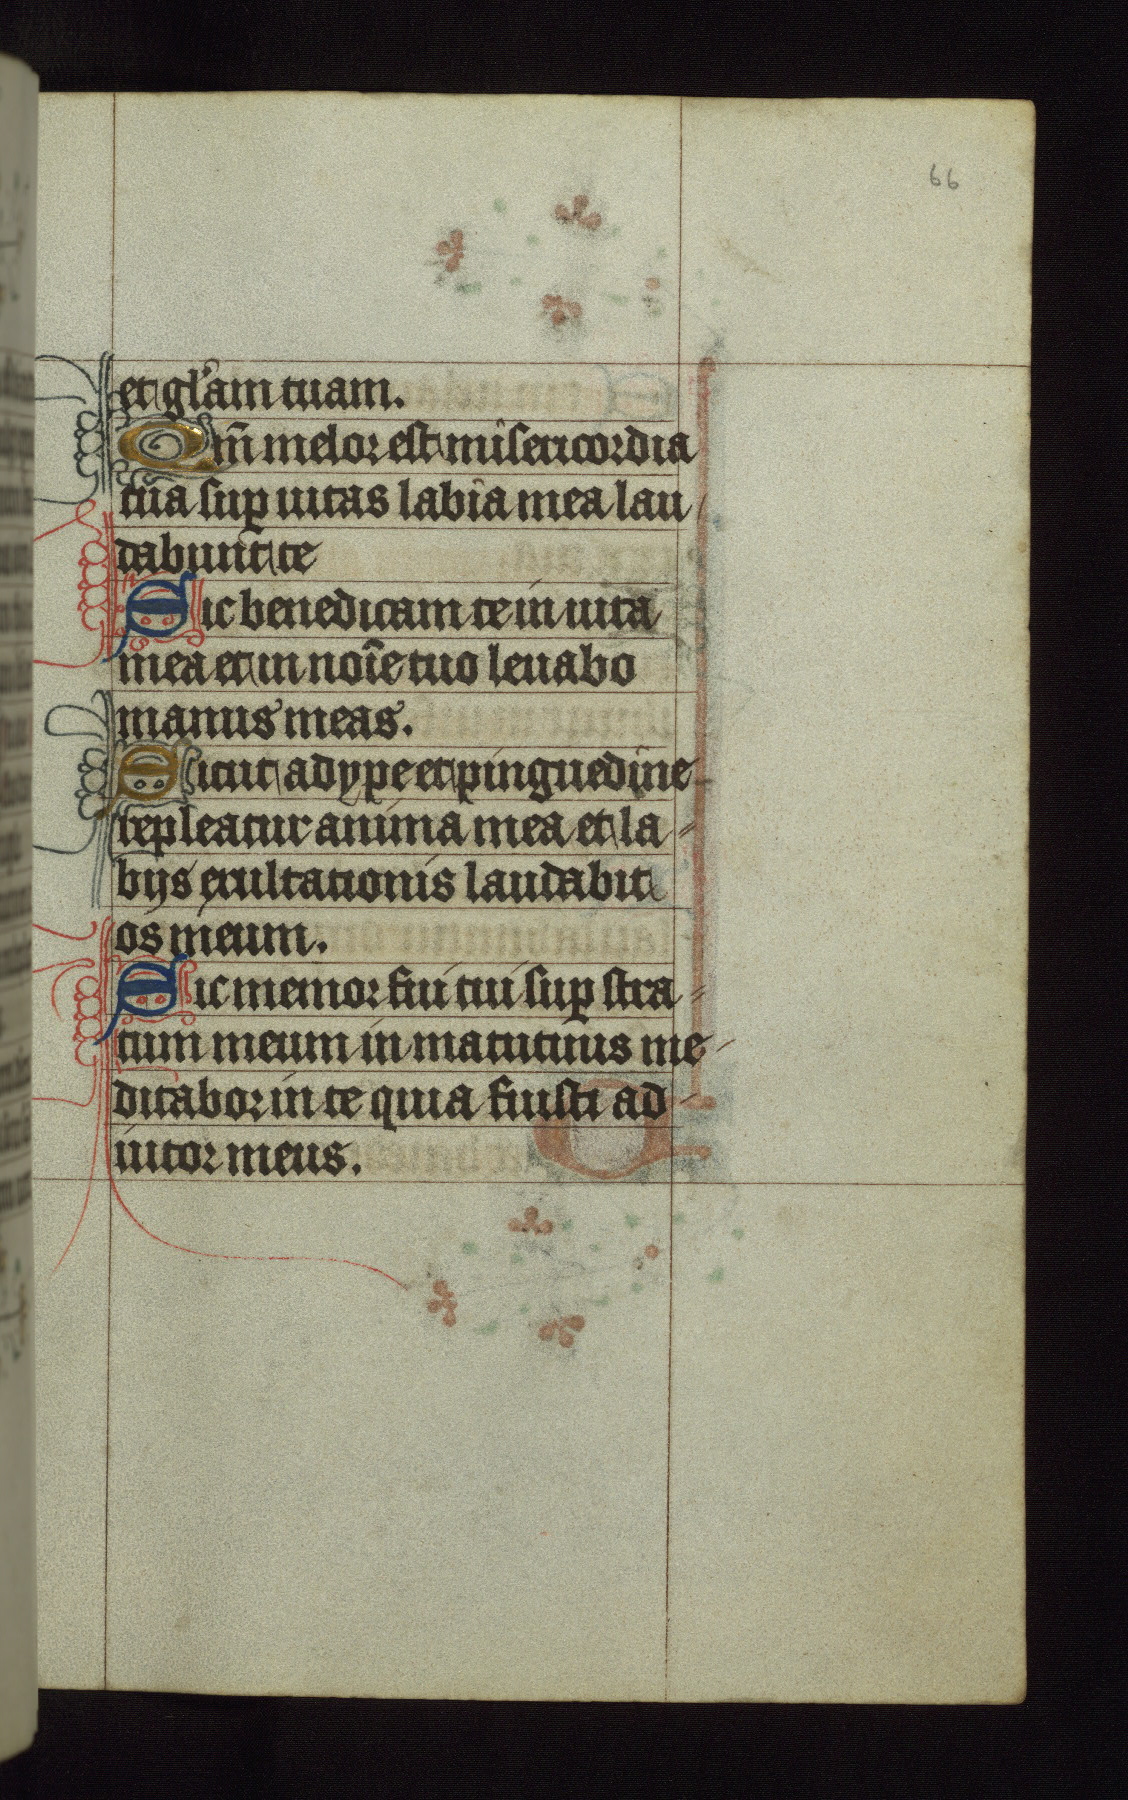 66
et gl'am tuam.
Qm̄ melor est misericordia
tua sup uitas labia mea lau
dabunt te
Sic benedicam te in uita
mea et in noīe tuo leuabo
manus meas.
Sicut adype et pinguedine
repleatur anima mea et la
bijs exultationis laudabit
os meum.
Sic memor fui tui sup stra
tum meum in matutinis me
ditabor in te quia fuisti ad
iutor meus.